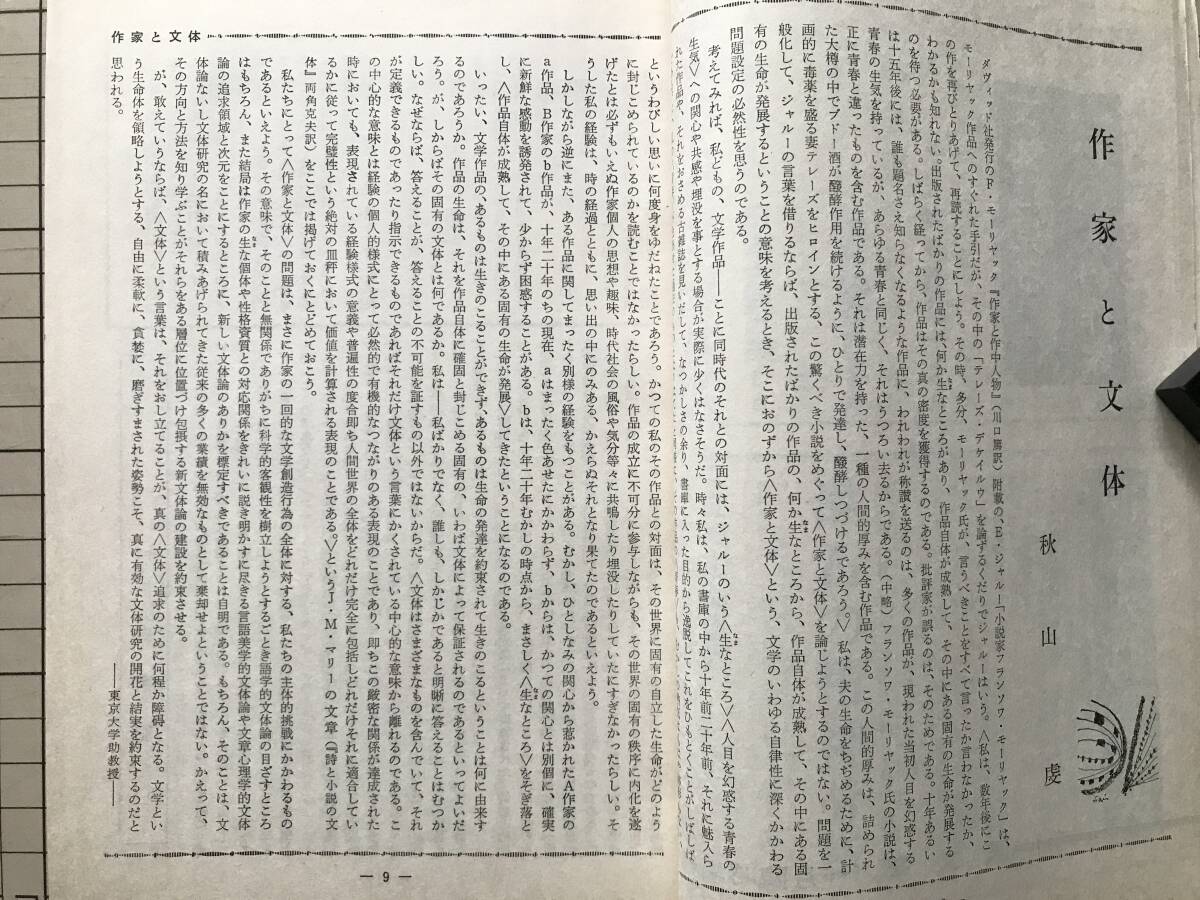 作家と文体
秋山虔
ダヴィッド社発行のF・モーリヤック『作家と作中人物』(川口篤訳)附載の、E・ジャルー「小説家フランソワ・モーリヤック」は、
モーリヤック作品へのすぐれた手引だが、その中の「テレーズ・デケイルウ」を論ずるくだりでジャルーはいう。〈私は、数年後にこ
の作を再びとりあげて、再読することにしよう。その時、多分、モーリヤック氏が、言うべきことをすべて言ったか言わなかったか、
わかるかも知れない。出版されたばかりの作品には、何か生なところがあり、作品自体が成熟して、その中にある固有の生命が発展する
のを待つ必要がある。しばらく経ってから、作品はその真の密度を獲得するのである。批評家が誤るのは、そのためである。十年あるい
は十五年後には、誰も題名さえ知らなくなるような作品に、われわれが称讃を送るのは、多くの作品が、現われた当初人目を幻惑する
青春の生気を持っているが、あらゆる青春と同じく、それはうつろい去るからである。(中略)フランソワ・モーリヤック氏の小説は、
正に青春と違ったものを含む作品である。それは潜在力を持った、一種の人間的厚みを含む作品である。この人間的厚みは、詰められ
た大樽の中でブドー酒が醱酵作用を続けるように、ひとりで発達し、醱酵しつづけるであろう。〉私は、夫の生命をちぢめるために、計
画的に毒薬を盛る妻テレーズをヒロインとする、この驚くべき小説をめぐって〈作家と文体〉を論じようとするのではない。問題を一
般化して、ジャルーの言葉を借りるならば、出版されたばかりの作品の、何か生なところから、作品自体が成熟して、その中にある固
有の生命が発展するということの意味を考えるとき、そこにおのずから〈作家と文体〉という、文学のいわゆる自律性に深くかかわる
問題設定の必然性を思うのである。
考えてみれば、私どもの、文学作品――ことに同時代のそれとの対面には、ジャルーのいう〈生なところ〉〈人目を幻惑する青春の
生気〉への関心や共感や埋没を事とする場合が実際に少くはなさそうだ。時々私は、私の書庫の中から十年前二十年前、それに魅入ら
れた作品や、それをおさめる古雑誌を見いだして、なつかしさの余り、書庫に入った目的から逸脱してこれをひもとくことがしばしば
作家と文体
というわびしい思いに何度身をゆだねたことであろう。かつての私のその作品との対面は、その世界に固有の自立した生命がどのよう
に封じこめられているのかを読むことではなかったらしい。作品の成立に不可分に参与しながらも、その世界の固有の秩序に内化を遂
げたとは必ずもいえぬ作家個人の思想や趣味、時代社会の風俗や気分等々に共鳴したり埋没したりしていたにすぎなかったらしい。そ
うした私の経験は、時の経過とともに、思い出の中にのみある、かえらぬそれとなり果てたのであるといえよう。
しかしながら逆にまた、ある作品に関してまったく別様の経験をもつことがある。むかし、ひとしなみの関心から惹かれたA作家の
a作品、B作家のb作品が、十年二十年のちの現在、aはまったく色あせたにかかわらず、bからは、かつての関心とは別個に、確実
に新鮮な感動を誘発されて、少からず困惑することがある。bは、十年二十年むかしの時点から、まさしく〈生なところ〉をそぎ落と
し、〈作品自体が成熟して、その中にある固有の生命が発展〉してきたということになるのである。
いったい、文学作品の、あるものは生きのこることができず、あるものは生命の発達を約束されて生きのこるということは何に由来す
るのであろうか。作品の生命は、それを作品自体に確固と封じこめる固有の、いわば文体によって保証されるのであるといってよいだ
ろう。が、しからばその固有の文体とは何であるか。私は――私ばかりでなく、誰しも、しかじかであると明晰に答えることはむつか
しい。なぜならば、答えることが、答えることの不可能を証すもの以外ではないからだ。〈文体はさまざまなものを含んでいて、それ
が定義できるものであったり指示できるものであればそれだけ文体という言葉にかくされている中心的な意味から離れるのである。こ
の中心的な意味とは経験の個人的様式にとって必然的で有機的なつながりのある表現のことであり、即ちこの厳密な関係が達成された
時においても、表現されている経験様式の意義や普遍性の度合即ち人間世界の全体をどれだけ完全に包括しどれだけそれに適合してい
るかに従って完璧性という絶対の皿秤において価値を計算される表現のことである。〉というJ・M・マリーの文章(『詩と小説の文
体』両角克夫訳)をここでは掲げておくにとどめておこう。
私たちにとって〈作家と文体〉の問題は、まさに作家の一回的な文学創造行為の全体に対する、私たちの主体的挑戦にかかわるもの
であるといえよう。その意味で、そのことと無関係でありがちに科学的客観性を樹立しようとするごとき語学的文体論の目ざすところ
はもちろん、また結局は作家の生な個体や性格資質との対応関係をきれいに説き明かすに尽きる言語美学的文体論や文章心理学的文体
論の追求領域と次元をことにするところに、新しい文体論のありかを標定すべきであることは自明である。もちろん、そのことは、文
体論ないし文体研究の名において積みあげられてきた従来の多くの業績を無効なものとして棄却せよということではない。かえって、
その方向と方法を知り学ぶことがそれらをある層位に位置づけ包摂する新文体論の建設を約束させる。
が、敢えていうならば、〈文体〉という言葉は、それをおし立てることが、真の〈文体〉追求のために何程か障碍となる。文学とい
う生命体を領略しようとする、自由に柔軟に、貪婪に、磨ぎすまされた姿勢こそ、真に有効な文体研究の開花と結実を約束するのだと
思われる。
――東京大学助教授――
— 9 —